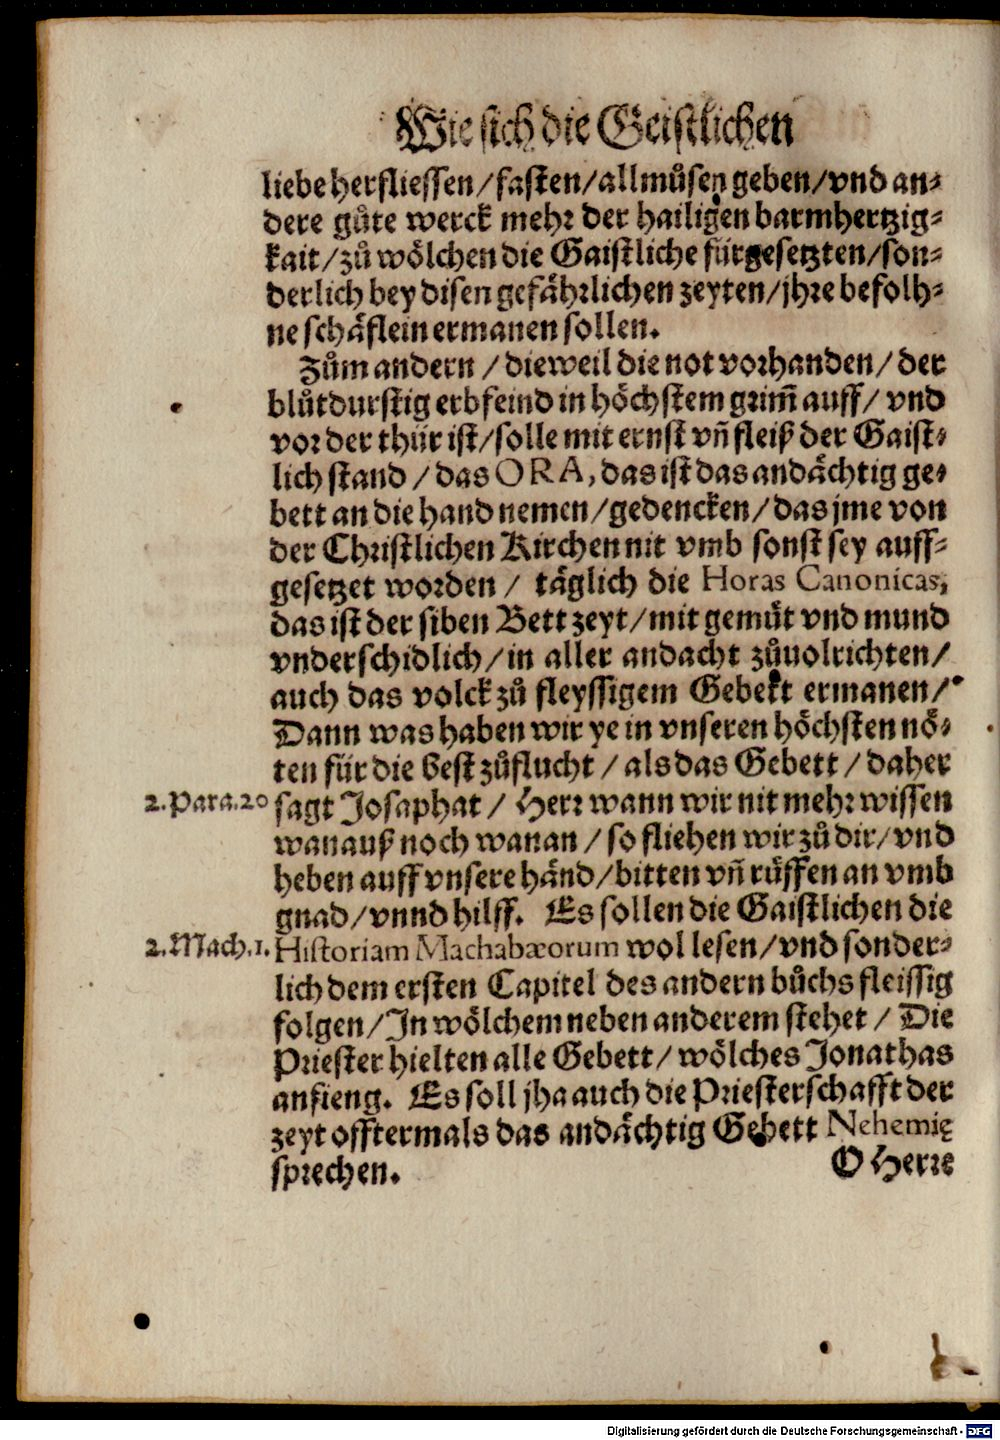 Wie sich die Geistlichen
liebe herfliessen/fasten/allmůsen geben/vnd an-
dere gůte werck mehr der hailigen barmhertzig-
kait/zů wölchen die Gaistliche fürgesetzten/son-
derlich bey disen gefährlichen zeyten/jhre befolh-
ne schäflein ermanen sollen.
Zům andern / dieweil die not vorhanden/ der
blůtdurstig erbfeind in höchstem grim̃ auff/ vnd
vor der thür ist/solle mit ernst vñ fleiß der Gaist-
lich stand / das ORA, das ist das andächtig ge-
bett an die hand nemen/gedencken/das jme von
der Christlichen Kirchen nit vmb sonst sey auff-
gesetzet worden / täglich die Horas Canonicas,
das ist der siben Bett zeyt/mit gemüt vnd mund
vnderschidlich/in aller andacht zůuolrichten/
auch das volck zů fleyssigem Gebett ermanen/
Dann was haben wir ye in vnseren höchsten nö-
ten für die best zůflucht / als das Gebett / daher
2. Para. 20 sagt Josaphat / Herr wann wir nit mehr wissen
wanauß noch wanan / so fliehen wir zů dir/vnd
heben auff vnsere händ/bitten vñ rüffen an vmb
gnad/vnnd hilff. Es sollen die Gaistlichen die
2. Mach. 1. Historiam Machabæorum wol lesen/vnd sonder-
lich dem ersten Capitel des andern bůchs fleissig
folgen/In wölchem neben anderem stehet / Die
Priester hielten alle Gebett/ wölches Jonathas
anfieng. Es soll jha auch die Priesterschafft der
zeyt offtermals das andächtig Gebett Nehemię
sprechen. O Herre
Digitalisierung gefördert durch die Deutsche Forschungsgemeinschaft - DFG